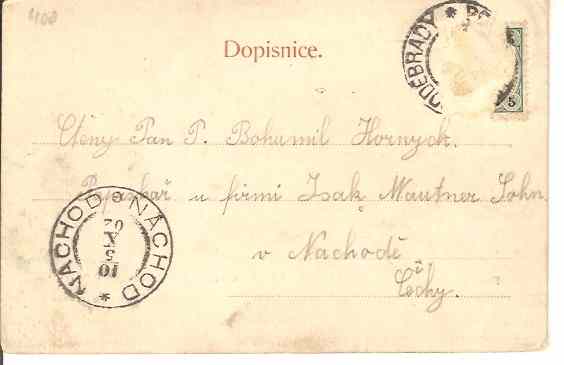 400
Dopisnice.
PODĚBRADY * PO
5
Ctěný Pan P. Bohumil Hornych.
u firmi Isak Mautner Sohn
v Nachodě
Čechy.
NACHOD * NÁCHOD *
02
X
5
10